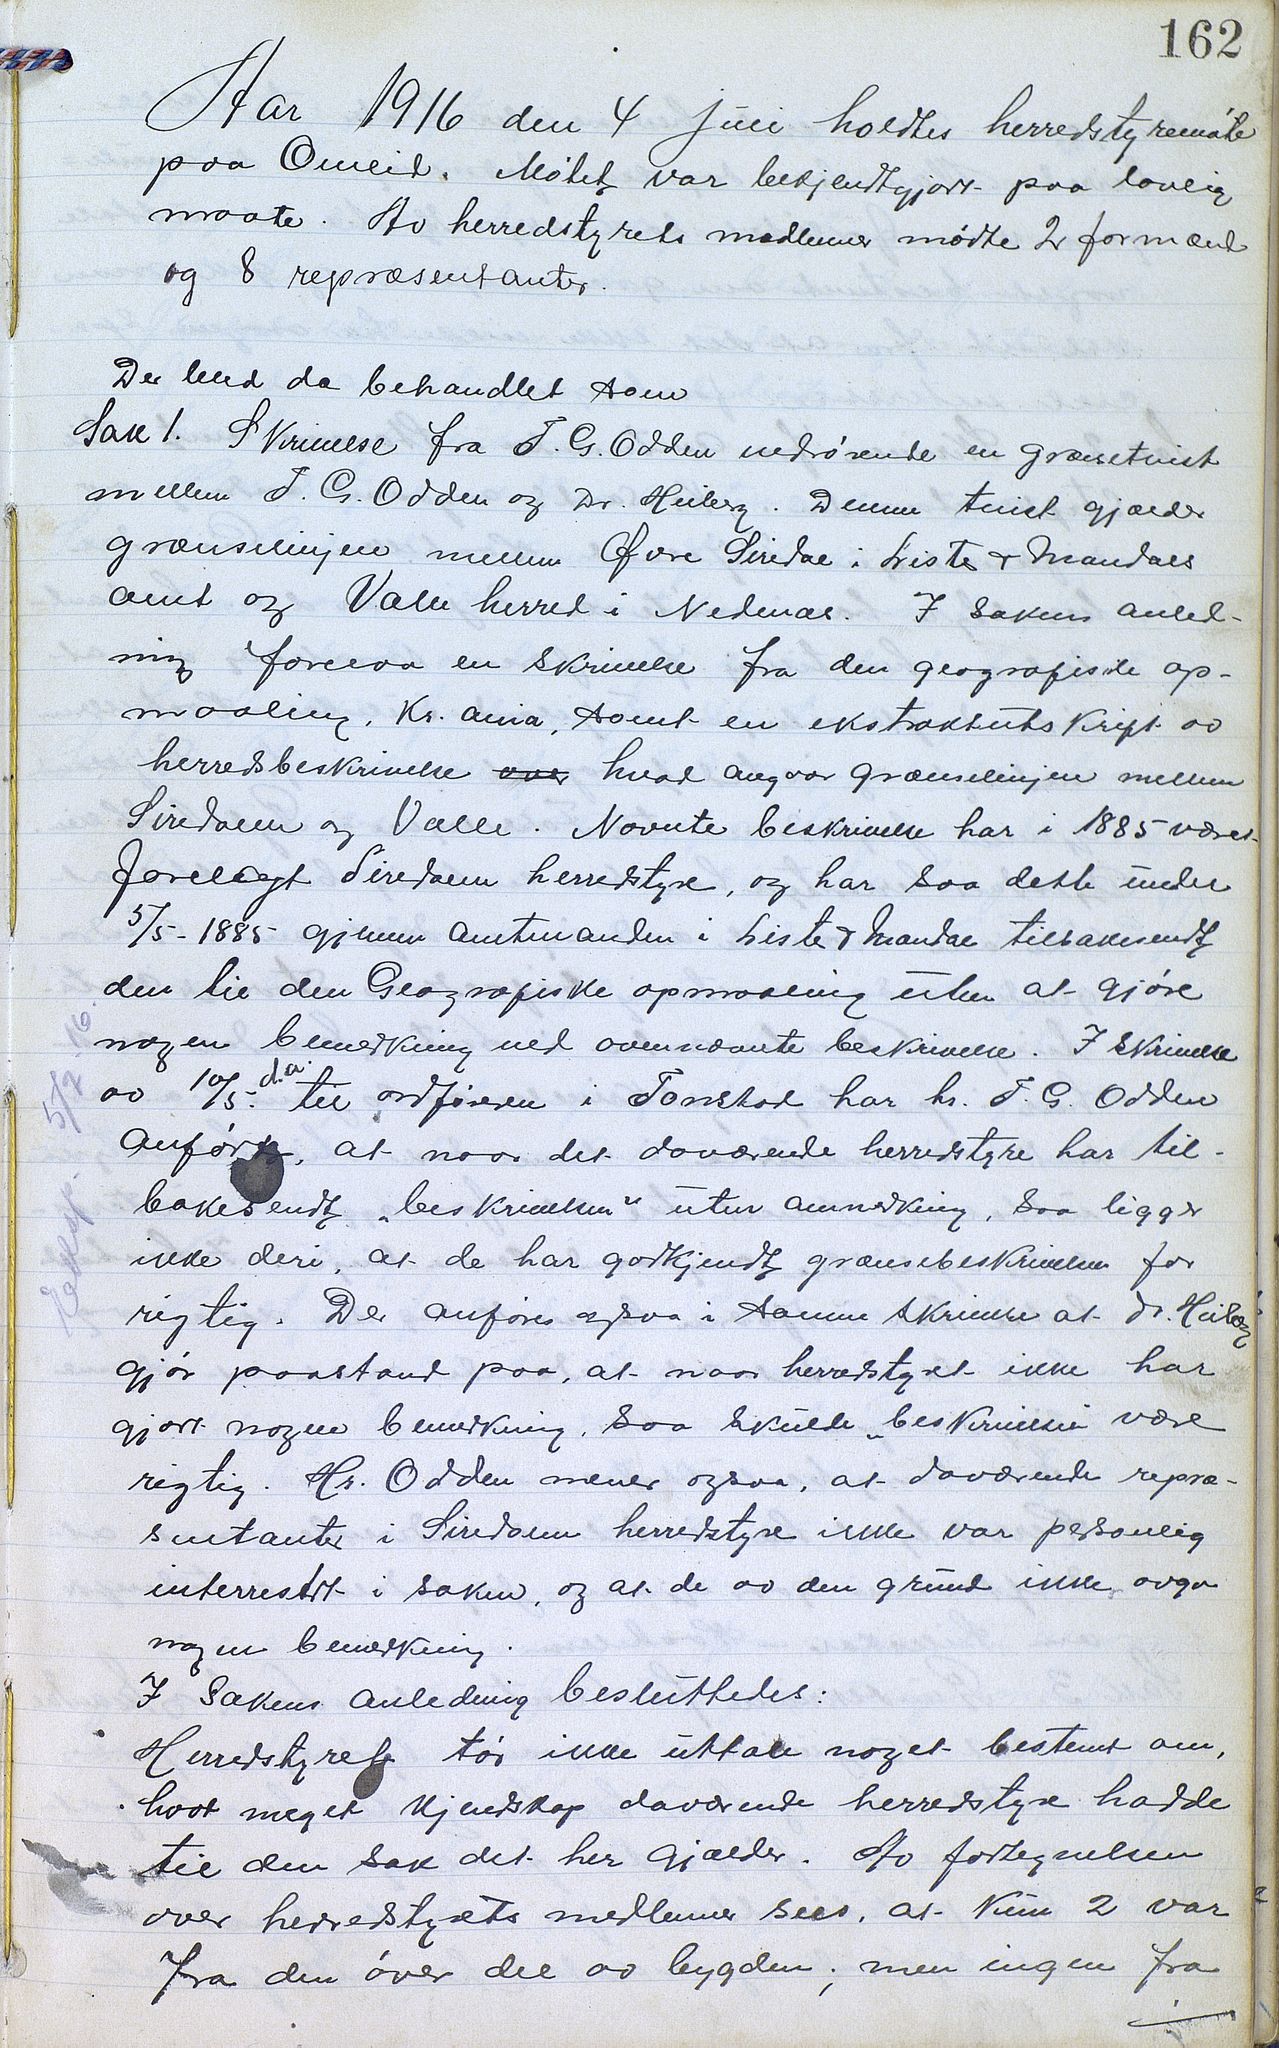 162
Aar 1916 den 4 juni holdtes herredstyremøte
paa Omeid. Møtet var bekjendtgjort paa lovlig
maate. Av herredstyrets medlemer mødte 2 formænd
og 8 repræsentanter.
Der blev da behandlet som
Sak 1. Skrivelse fra T. G. Odden vedrørende en grænsetvist
mellem T. G. Odden og Dr. Heiberg. Denne tvist gjælder
grænselinjen mellem Øvre Siredal i Lister & Mandals
amt og Valle herred i Nedenæs. I sakens anled-
ning forelaa en skrivelse fra den geografiske op-
maaling, Kr.ania, samt en ekstraktutskript av
herredsbeskrivelse over hvad angaar grænselinjen mellem
Siredalen og Valle. Nævnte beskrivelse har i 1885 været
forelagt Siredalen herredstyre, og har saa dette under
5/5-1885 gjennem amtmanden i Lister & Mandal tilbakesendt
den til den Geografiske opmaaling uten at gjøre
nogen bemerkning ved ovennævnte beskrivelse. I skrivelse
av 10/5. d.a. til ordføreren i Tonstad har hr. T. G. Odden
anført, at naar det daværende herredstyre har til-
bakesendt „beskrivelsen" uten anmerkning, saa ligger
ikke deri, at de har godkjendt grænsebeskrivelsen for
rigtig. Der anføres ogsaa i samme skrivelse at dr. Heiberg
gjør paastand paa, at naar herredstyret ikke har
gjort nogen bemerkning, saa skulde „beskrivelsen være
rigtig. Hr. Odden mener ogsaa, at daværende repræ-
sentanter i Siredalen herredstyre ikke var personlig
interresert i saken, og at de av den grund ikke avga
nogen bemerkning.
I sakens anledning besluttedes:
Herredstyret tør ikke uttale noget bestemt om,
hvor meget kjendskap daværende herredstyre hadde
til den sak det her gjælder. Av fortegnelsen
over herredstyrets medlemer sees, at kun 2 var
fra den øvre del av bygden, men ingen fra
Eksp. 5/7.16.